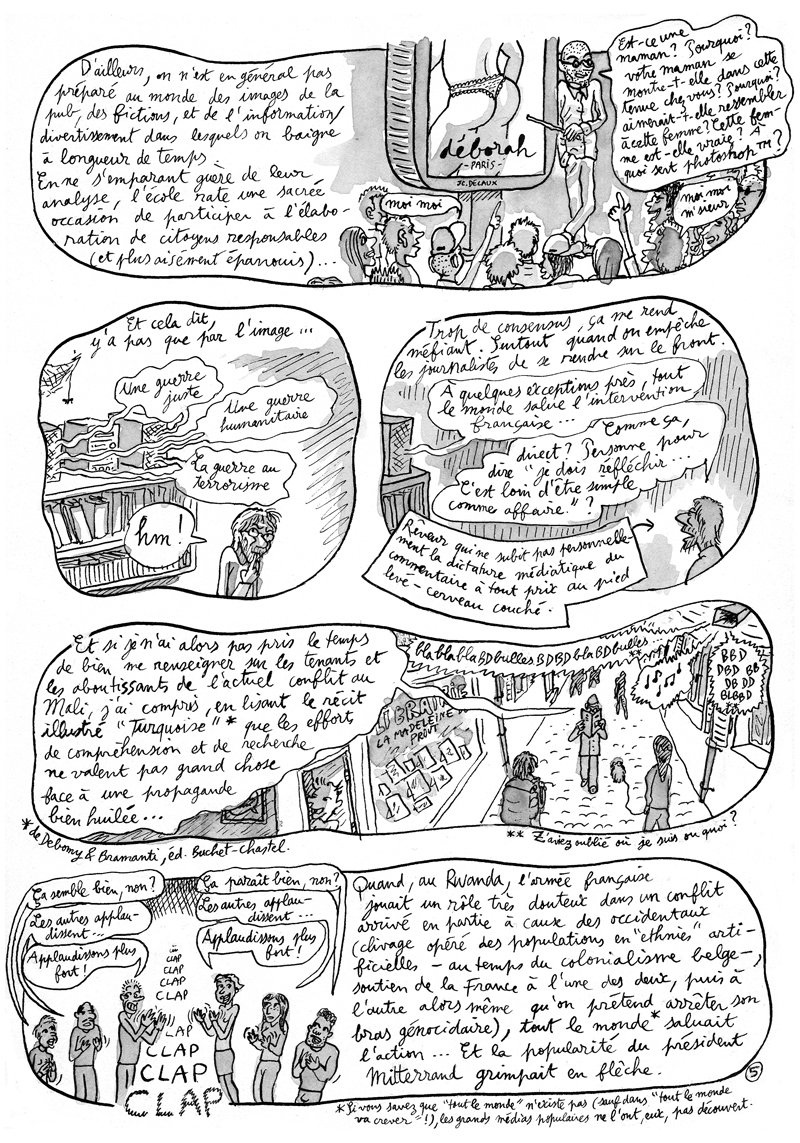 D'ailleurs, on n'est en général pas
préparé au monde des images de la
pub, des fictions, et de l'information/
divertissement dans lesquels on baigne
à longueur de temps.
En ne s'emparant guère de leur
analyse, l'école rate une sacrée
occasion de participer à l'élabo-
ration de citoyens responsables
(et plus aisément épanouis)...
déborah
-PARIS-
JC.DECAUX
Est-ce une
maman? Pourquoi?
votre maman se
montre-t-elle dans cette
tenue chez vous? Pourquoi?
aimerait-t-elle ressembler
à cette femme? Cette fem-
me est-elle vraie? À
quoi sert photoshop™?
moi moi
moi moi
m'sieur
Et cela dit,
y'a pas que par l'image...
Une guerre
juste
Une guerre
humanitaire
La guerre au
terrorisme
hm!
Trop de consensus, ça me rend
méfiant. Surtout quand on empêche
les journalistes de se rendre sur le front.
À quelques exceptions près, tout
le monde salue l'intervention
française...
Comme ça,
direct? Personne pour
dire "je dois réfléchir...
C'est loin d'être simple
comme affaire."?
Rêveur qui ne subit pas personnelle-
ment la dictature médiatique du
commentaire à tout prix au pied
levé-cerveau couché.
Et si je n'ai alors pas pris le temps
de bien me renseigner sur les tenants et
les aboutissants de l'actuel conflit au
Mali, j'ai compris, en lisant le récit
illustré "Turquoise"* que les efforts
de compréhension et de recherche
ne valent pas grand chose
face à une propagande
bien huilée...
bla bla bla BD bulles BD BD bla BD bulles**
LIBRAIRIE
LA MADELEINE
PROUT
BBD
DBD BB
DB DD
BLBBD
*de Debomy & Bramanti, éd. Buchet-Chastel.
** Z'aviez oublié où je suis ou quoi?
Ça semble bien, non?
Les autres applau-
dissent...
Applaudissons plus
fort!
Ça paraît bien, non?
Les autres applau-
dissent...
Applaudissons plus
fort!
CLAP
CLAP
CLAP
CLAP
LAP
CLAP
CLAP
CLAP
Quand, au Rwanda, l'armée française
jouait un rôle très douteux dans un conflit
arrivé en partie à cause des occidentaux
(clivage opéré des populations en "ethnies" arti-
ficielles - au temps du colonialisme belge-,
soutien de la France à l'une des deux, puis à
l'autre alors même qu'on prétend arrêter son
bras génocidaire), tout le monde* saluait
l'action... Et la popularité du président
Mitterrand grimpait en flèche.
5
*Si vous savez que "tout le monde" n'existe pas (sauf dans "tout le monde
va crever"!), les grands médias populaires ne l'ont, eux, pas découvert.